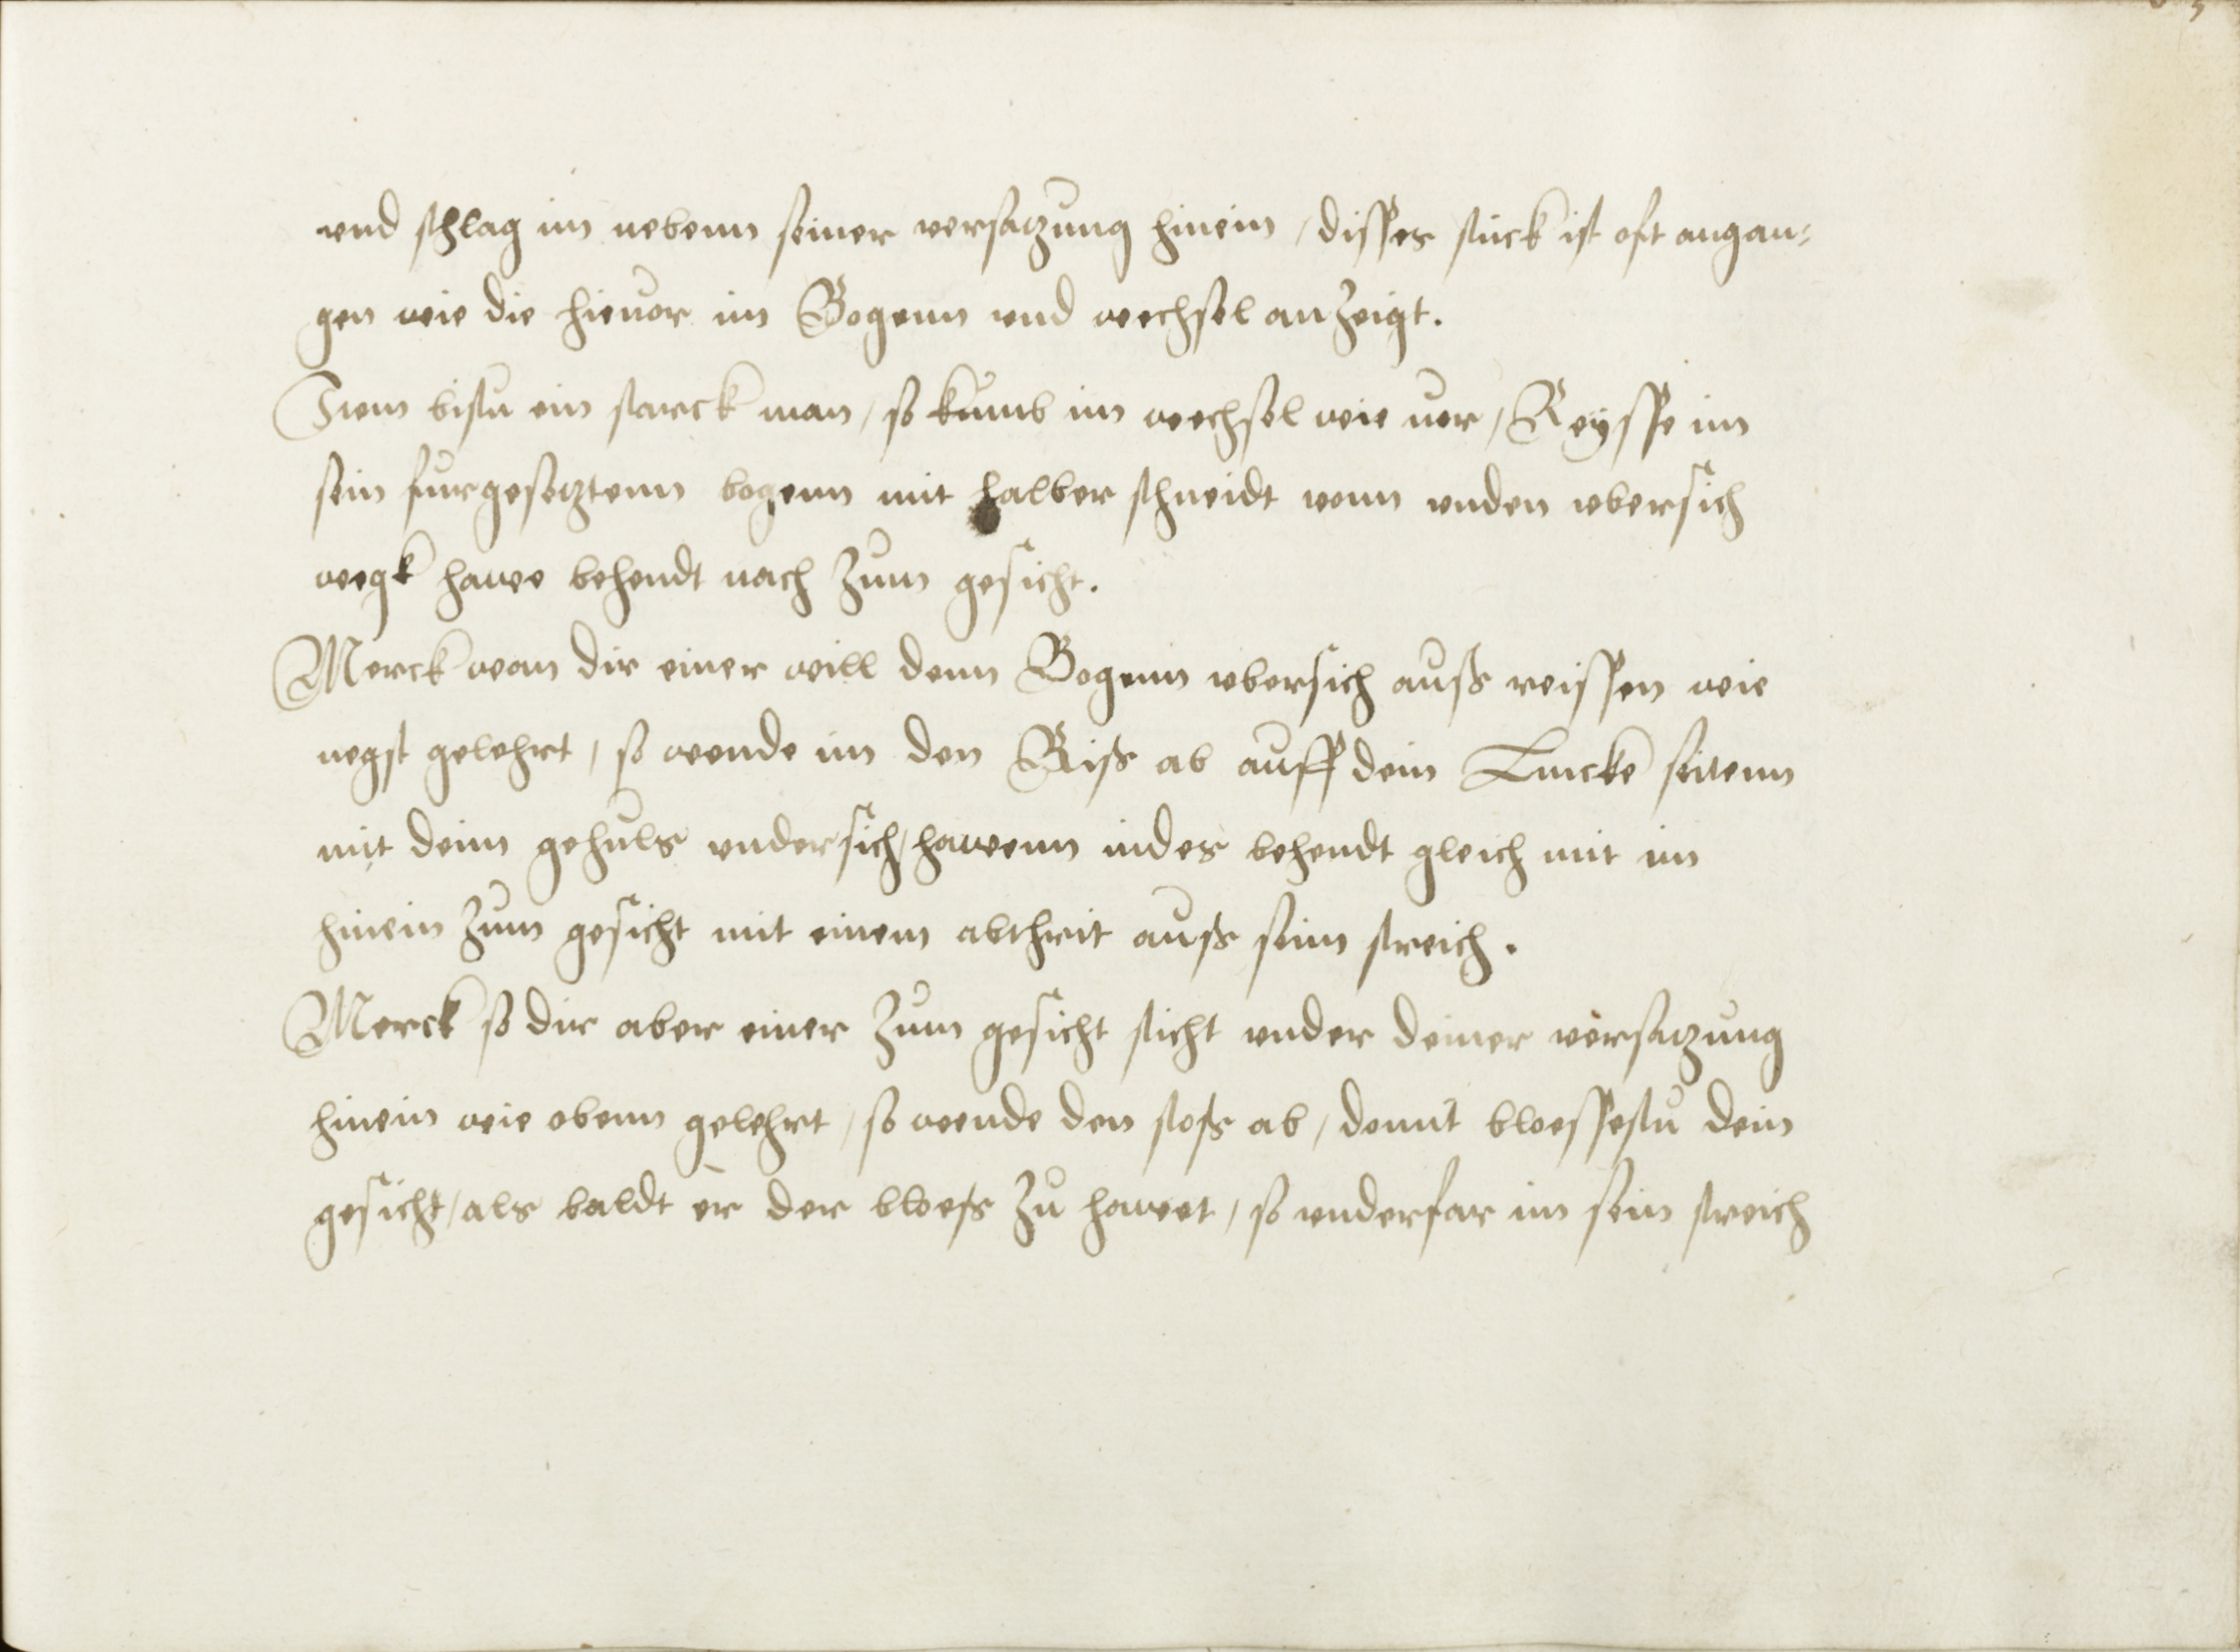 vnd schlag im nebenn seiner versatzung hinein, disses stuck ist oft angan-
gen wie die hieuor im Bogenn vnd wechsel anzeigt.
Item bistu ein starck man, so kumb im wechsel wie vor, Reysse im
sein furgesetztenn bogenn mit halber schneidt vonn vnden vbersich
wegk hawe behendt nach zum gesicht.
Merck wan dir einer will denn Bogenn vbersich auß reissen wie
negst gelehrt, so wende im den Riß ab auff dein Lincke seitenn
mit deim gehuls vndersich, hawenn indes behendt gleich mit im
hinein zum gesicht mit einem abthrit auß seim streich.
Merck so dir aber einer zum gesicht sticht vnder deiner versatzung
hinein wie obenn gelehrt, so wende den stoß ab, domit bloessestu dein
gesicht, als baldt er der bloeß zu hawet, so vnderfar im sein streich